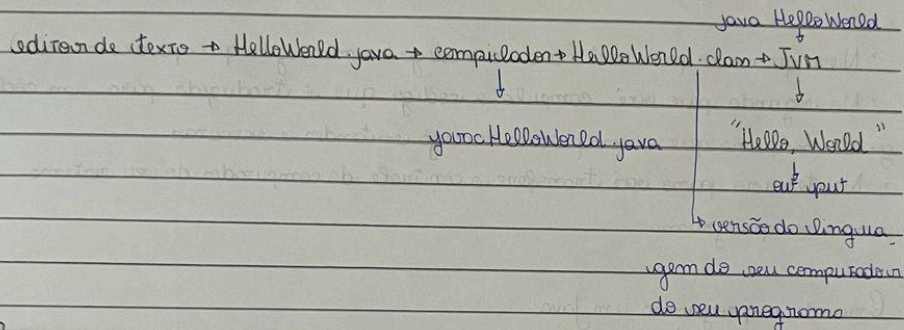 java HelloWorld
editor de texto → HelloWorld.java → compilador → HelloWorld.class → JVM
javac HelloWorld.java
"Hello, World"
output
↳ versão do lingua-
gem do seu computador
do seu programa